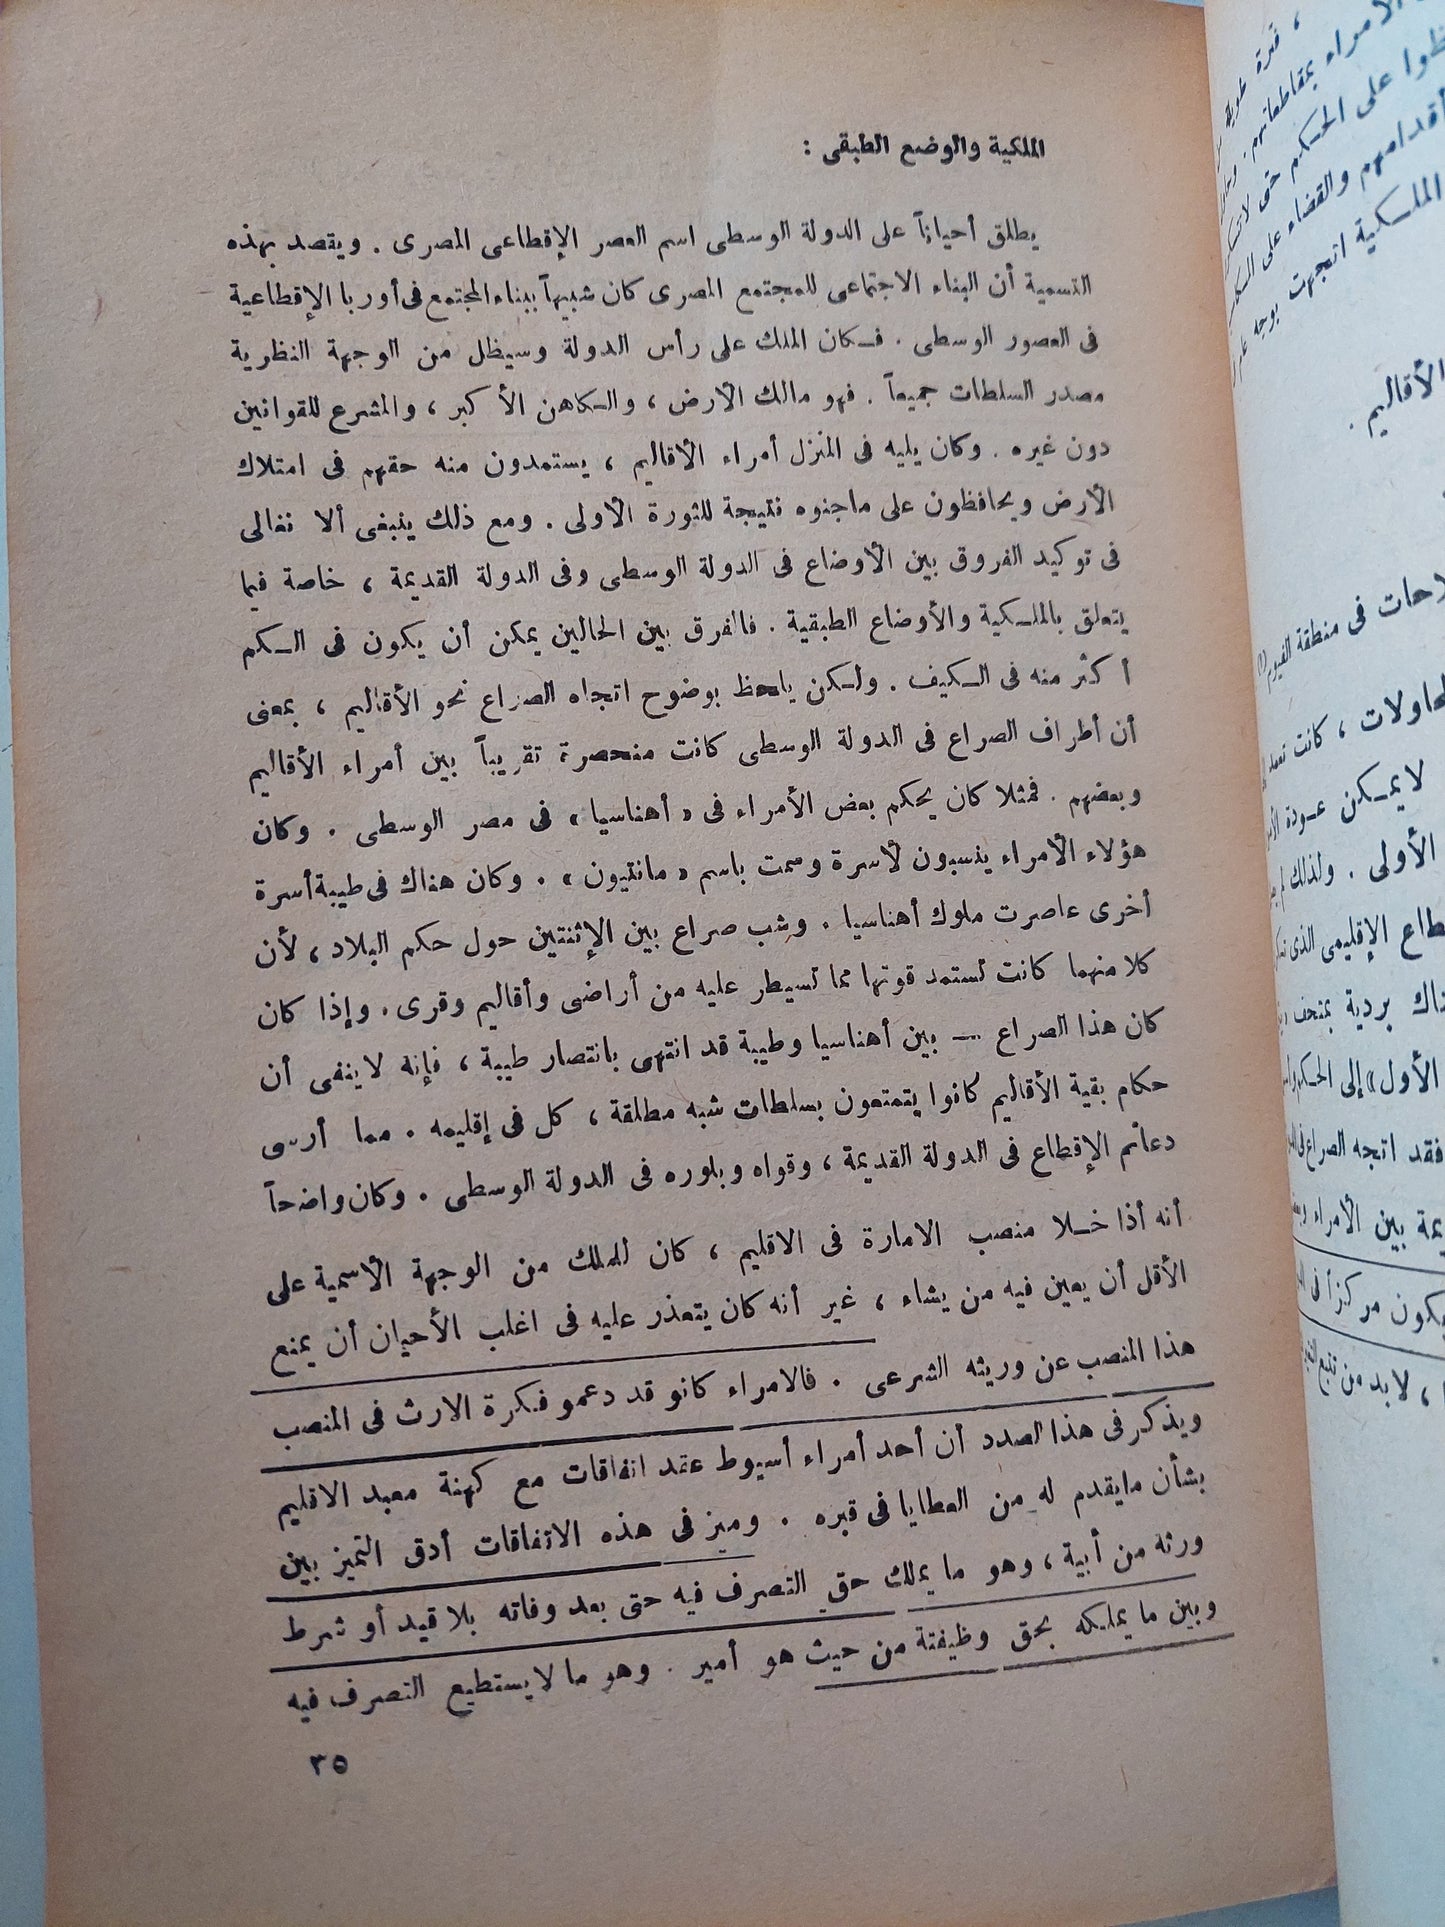 الملكية والوضع الطبقى :
يطلق أحياناً على الدولة الوسطى اسم العصر الإقطاعى المصرى . ويقصد بهذه
التسمية أن البناء الاجتماعى للمجتمع المصرى كان شبيهاً ببناء المجتمع فى أوربا الإقطاعية
فى العصور الوسطى . فكان الملك على رأس الدولة وسيظل من الوجهة النظرية
مصدر السلطات جميعاً . فهو مالك الأرض ، والكاهن الأكبر ، والمشرع للقوانين
دون غيره . وكان يليه فى المنزل أمراء الأقاليم ، يستمدون منه حقهم فى امتلاك
الأرض ويحافظون على ماجنوه نتيجة للثورة الأولى . ومع ذلك ينبغى ألا نغالى
فى توكيد الفروق بين الأوضاع فى الدولة الوسطى وفى الدولة القديمة ، خاصة فيما
يتعلق بالملكية والأوضاع الطبقية . فالفرق بين الحالين يمكن أن يكون فى الكم
أكثر منه فى الكيف . ولكن يلحظ بوضوح اتجاه الصراع نحو الأقاليم ، بمعنى
أن أطراف الصراع فى الدولة الوسطى كانت منحصرة تقريباً بين أمراء الأقاليم
وبعضهم . فمثلا كان يحكم بعض الأمراء فى « أهناسيا » فى مصر الوسطى . وكان
هؤلاء الأمراء ينسبون لأسرة وسمت باسم « مانتيون » . وكان هناك فى طيبة أسرة
أخرى عاصرت ملوك أهناسيا . وشب صراع بين الإثنتين حول حكم البلاد ، لأن
كلا منهما كانت تستمد قوتها مما تسيطر عليه من أراضى وأقاليم وقرى . وإذا كان
كان هذا الصراع — بين أهناسيا وطيبة قد انتهى بانتصار طيبة ، فإنه لا ينفى أن
حكام بقية الأقاليم كانوا يتمتعون بسلطات شبه مطلقة ، كل فى إقليمه . مما أرسى
دعائم الإقطاع فى الدولة القديمة ، وقواه وبلوره فى الدولة الوسطى . وكان واضحاً
أنه أذا خلا منصب الامارة فى الاقليم ، كان للملك من الوجهة الأسمية على
الأقل أن يعين فيه من يشاء ، غير أنه كان يتعذر عليه فى اغلب الأحيان أن يمنع
هذا المنصب عن وريثه الشرعى . فالامراء كانو قد دعمو فكرة الارث فى المنصب
ويذكر فى هذا الصدد أن أحد أمراء أسيوط عقد اتفاقات مع كهنة معبد الاقليم
بشأن مايقدم له من العطايا فى قبره . وميز فى هذه الاتفاقات أدق التميز بين
ورثه من أبية ، وهو ما يملك حق التصرف فيه حتى بعد وفاته بلا قيد أو شرط
وبين ما يملكه بحق وظيفتة من حيث هو أمير . وهو ما لا يستطيع التصرف فيه
٣٥
الأقاليم .
لاحات فى منطقة الفيوم (١)
لايمكن عودة
الأولى . ولذلك لم
طاع الإقليمى الذى
ناك بردية بمتحف
الأول » إلى الحكم
فقد اتجه الصراع
بين الأمراء
يكون مركزاً فى
، لابد من تتبع